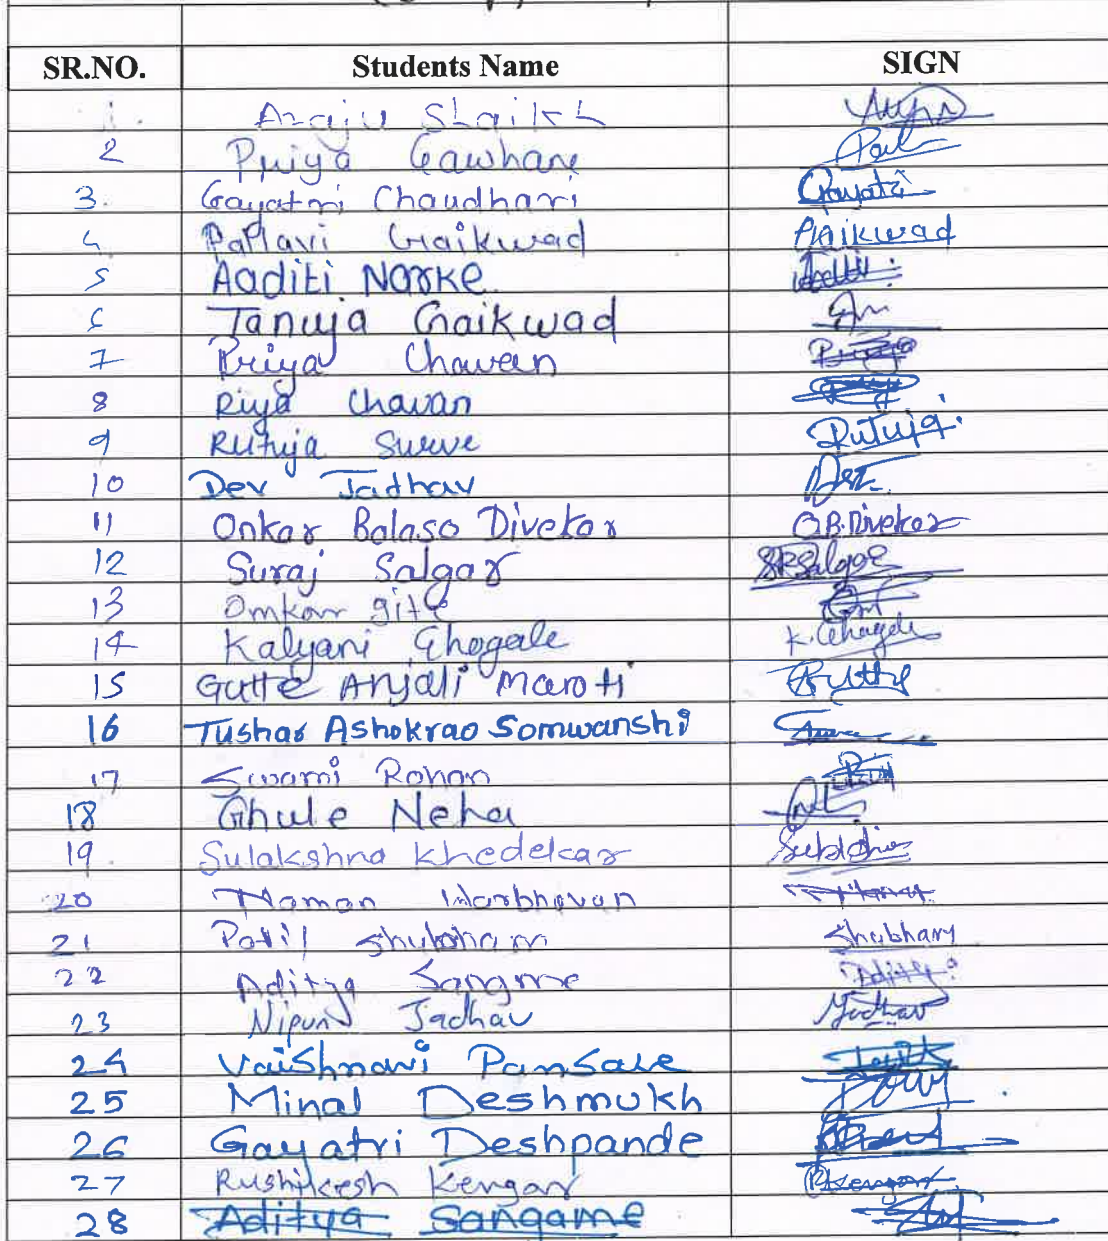 SR.NO. Students Name SIGN
1. Araju Shaikh
2 Priya Gawhane
3. Gayatri Chaudhari Gayatri
4 Pallavi Gaikwad PGaikwad
5 Aaditi Narke Aaditi
6 Tanuja Gaikwad
7 Priya Chavan Priya
8 Riya Chavan
9 Rutuja Surve Rutuja
10 Dev Jadhav Dev
11 Onkar Balaso Divekar O.B.Divekar
12 Suraj Salgar SRSalgar
13 Omkar gite Om
14 Kalyani Ghogale K.Ghogale
15 Gutte Anjali Maroti Gutte
16 Tushar Ashokrao Somwanshi
17 Swami Rohan
18 Ghule Neha
19. Sulakshna Khedekar
20 Naman Warbhuvan
21 Patil Shubham Shubham
22 Aditya Sangme Aditya
23 Nipun Jadhav Jadhav
24 Vaishnavi Pansare
25 Minal Deshmukh
26 Gayatri Deshpande
27 Rushikesh Kengar RKengar
28 Aditya Sangame